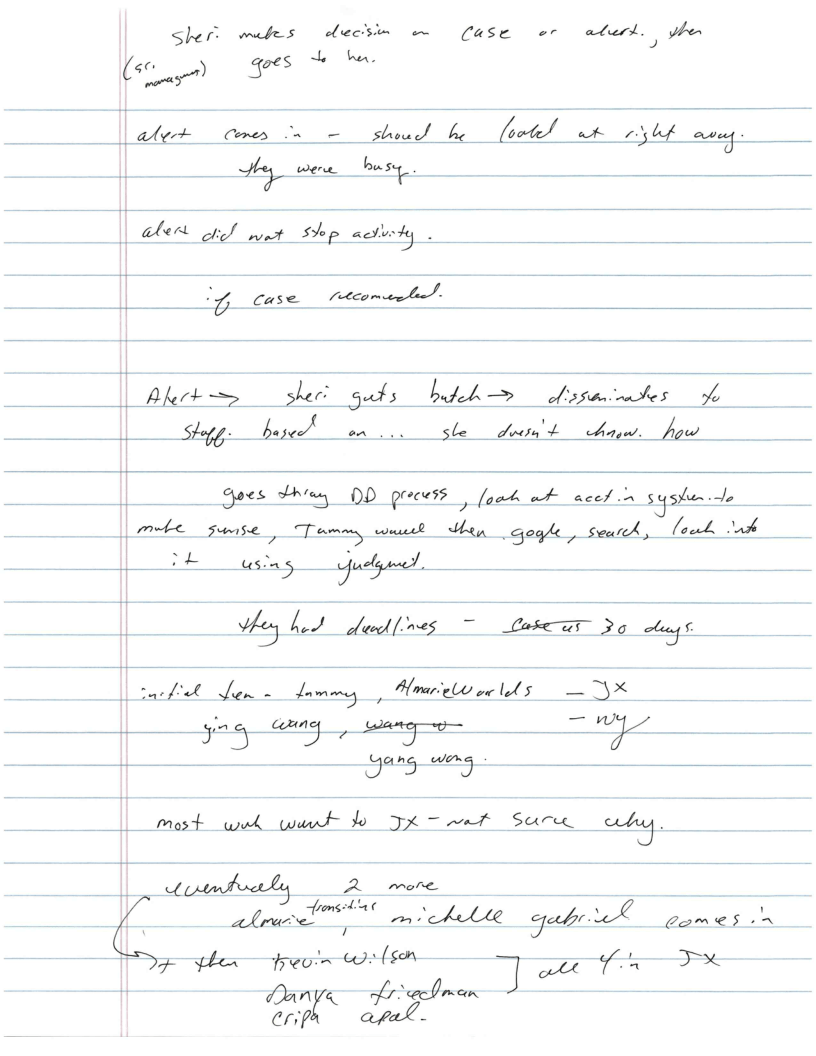 Sheri makes decision on case or alert., then
(sr. management) goes to her.
alert comes in - should be looked at right away.
they were busy.
alert did not stop activity.
if case recomended.
Alert → sheri gets batch → disseminates to
staff. based on ... she doesn't know. how
goes thray DD process, look at acct in system. to
make sense, Tammy would then gogle, search, look into
it using judgmet.
they had deadlines - case us 30 days.
initial team - tammy, Almarie Worlds - JX
ying wang, wang w - NY
yang wong.
most work want to JX - not sure why.
eventually 2 more
almarie transitions, michelle gabriel comes in
+ then Kevin Wilson ] all 4 in JX
Danya friedman
cripa apal.